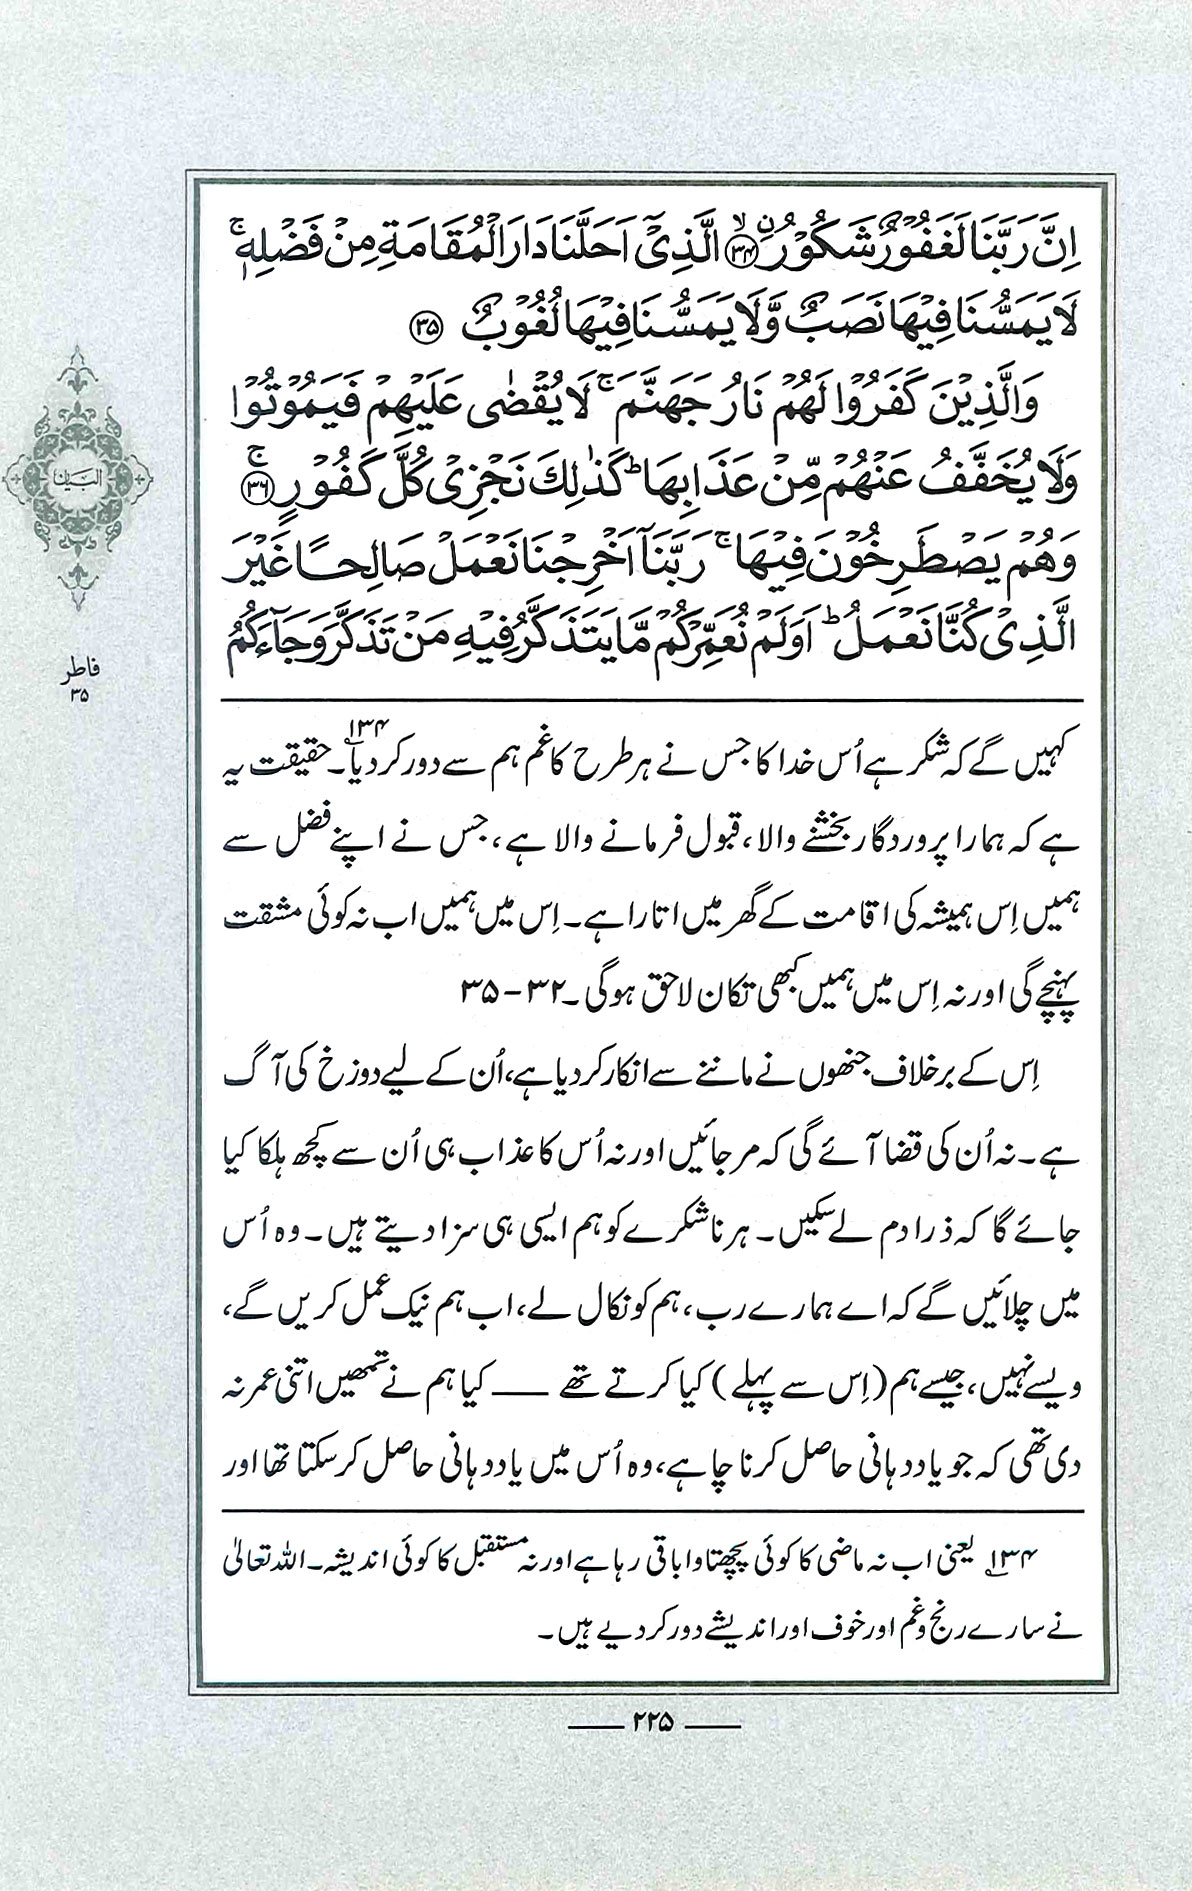 اِنَّ رَبَّنَا لَغَفُوْرٌ شَكُوْرُ ۨ ﴿۳۴﴾ۙ الَّذِیْۤ اَحَلَّنَا دَارَ الْمُقَامَةِ مِنْ فَضْلِهٖ ۚ
لَا یَمَسُّنَا فِیْهَا نَصَبٌ وَّلَا یَمَسُّنَا فِیْهَا لُغُوْبٌ ﴿۳۵﴾
وَالَّذِیْنَ كَفَرُوْا لَهُمْ نَارُ جَهَنَّمَ ۚ لَا یُقْضٰی عَلَیْهِمْ فَیَمُوْتُوْا
وَلَا یُخَفَّفُ عَنْهُمْ مِّنْ عَذَابِهَا ؕ كَذٰلِكَ نَجْزِیْ كُلَّ كَفُوْرٍ ﴿۳۶﴾ۚ
وَهُمْ یَصْطَرِخُوْنَ فِیْهَا ۚ رَبَّنَاۤ اَخْرِجْنَا نَعْمَلْ صَالِحًا غَیْرَ
الَّذِیْ كُنَّا نَعْمَلُ ؕ اَوَلَمْ نُعَمِّرْكُمْ مَّا یَتَذَكَّرُ فِیْهِ مَنْ تَذَكَّرَ وَجَآءَكُمُ
البیان
فاطر
۳۵
کہیں گے کہ شکر ہے اُس خدا کا جس نے ہر طرح کا غم ہم سے دور کر دیا۱۳۴۔ حقیقت یہ
ہے کہ ہمارا پروردگار بخشنے والا، قبول فرمانے والا ہے، جس نے اپنے فضل سے
ہمیں اِس ہمیشہ کی اقامت کے گھر میں اتارا ہے۔ اِس میں ہمیں اب نہ کوئی مشقت
پہنچے گی اور نہ اِس میں ہمیں کبھی تکان لاحق ہوگی۔ ۳۲-۳۵
اِس کے برخلاف جنھوں نے ماننے سے انکار کر دیا ہے، اُن کے لیے دوزخ کی آگ
ہے۔ نہ اُن کی قضا آئے گی کہ مر جائیں اور نہ اُس کا عذاب ہی اُن سے کچھ ہلکا کیا
جائے گا کہ ذرا دم لے سکیں۔ ہر ناشکرے کو ہم ایسی ہی سزا دیتے ہیں۔ وہ اُس
میں چلائیں گے کہ اے ہمارے رب، ہم کو نکال لے، اب ہم نیک عمل کریں گے،
ویسے نہیں، جیسے ہم (اِس سے پہلے) کیا کرتے تھے — کیا ہم نے تمھیں اتنی عمر نہ
دی تھی کہ جو یاددہانی حاصل کرنا چاہے، وہ اُس میں یاددہانی حاصل کر سکتا تھا اور
۱۳۴ یعنی اب نہ ماضی کا کوئی پچھتاوا باقی رہا ہے اور نہ مستقبل کا کوئی اندیشہ۔ اللہ تعالیٰ
نے سارے رنج و غم اور خوف اور اندیشے دور کر دیے ہیں۔
— ۲۲۵ —